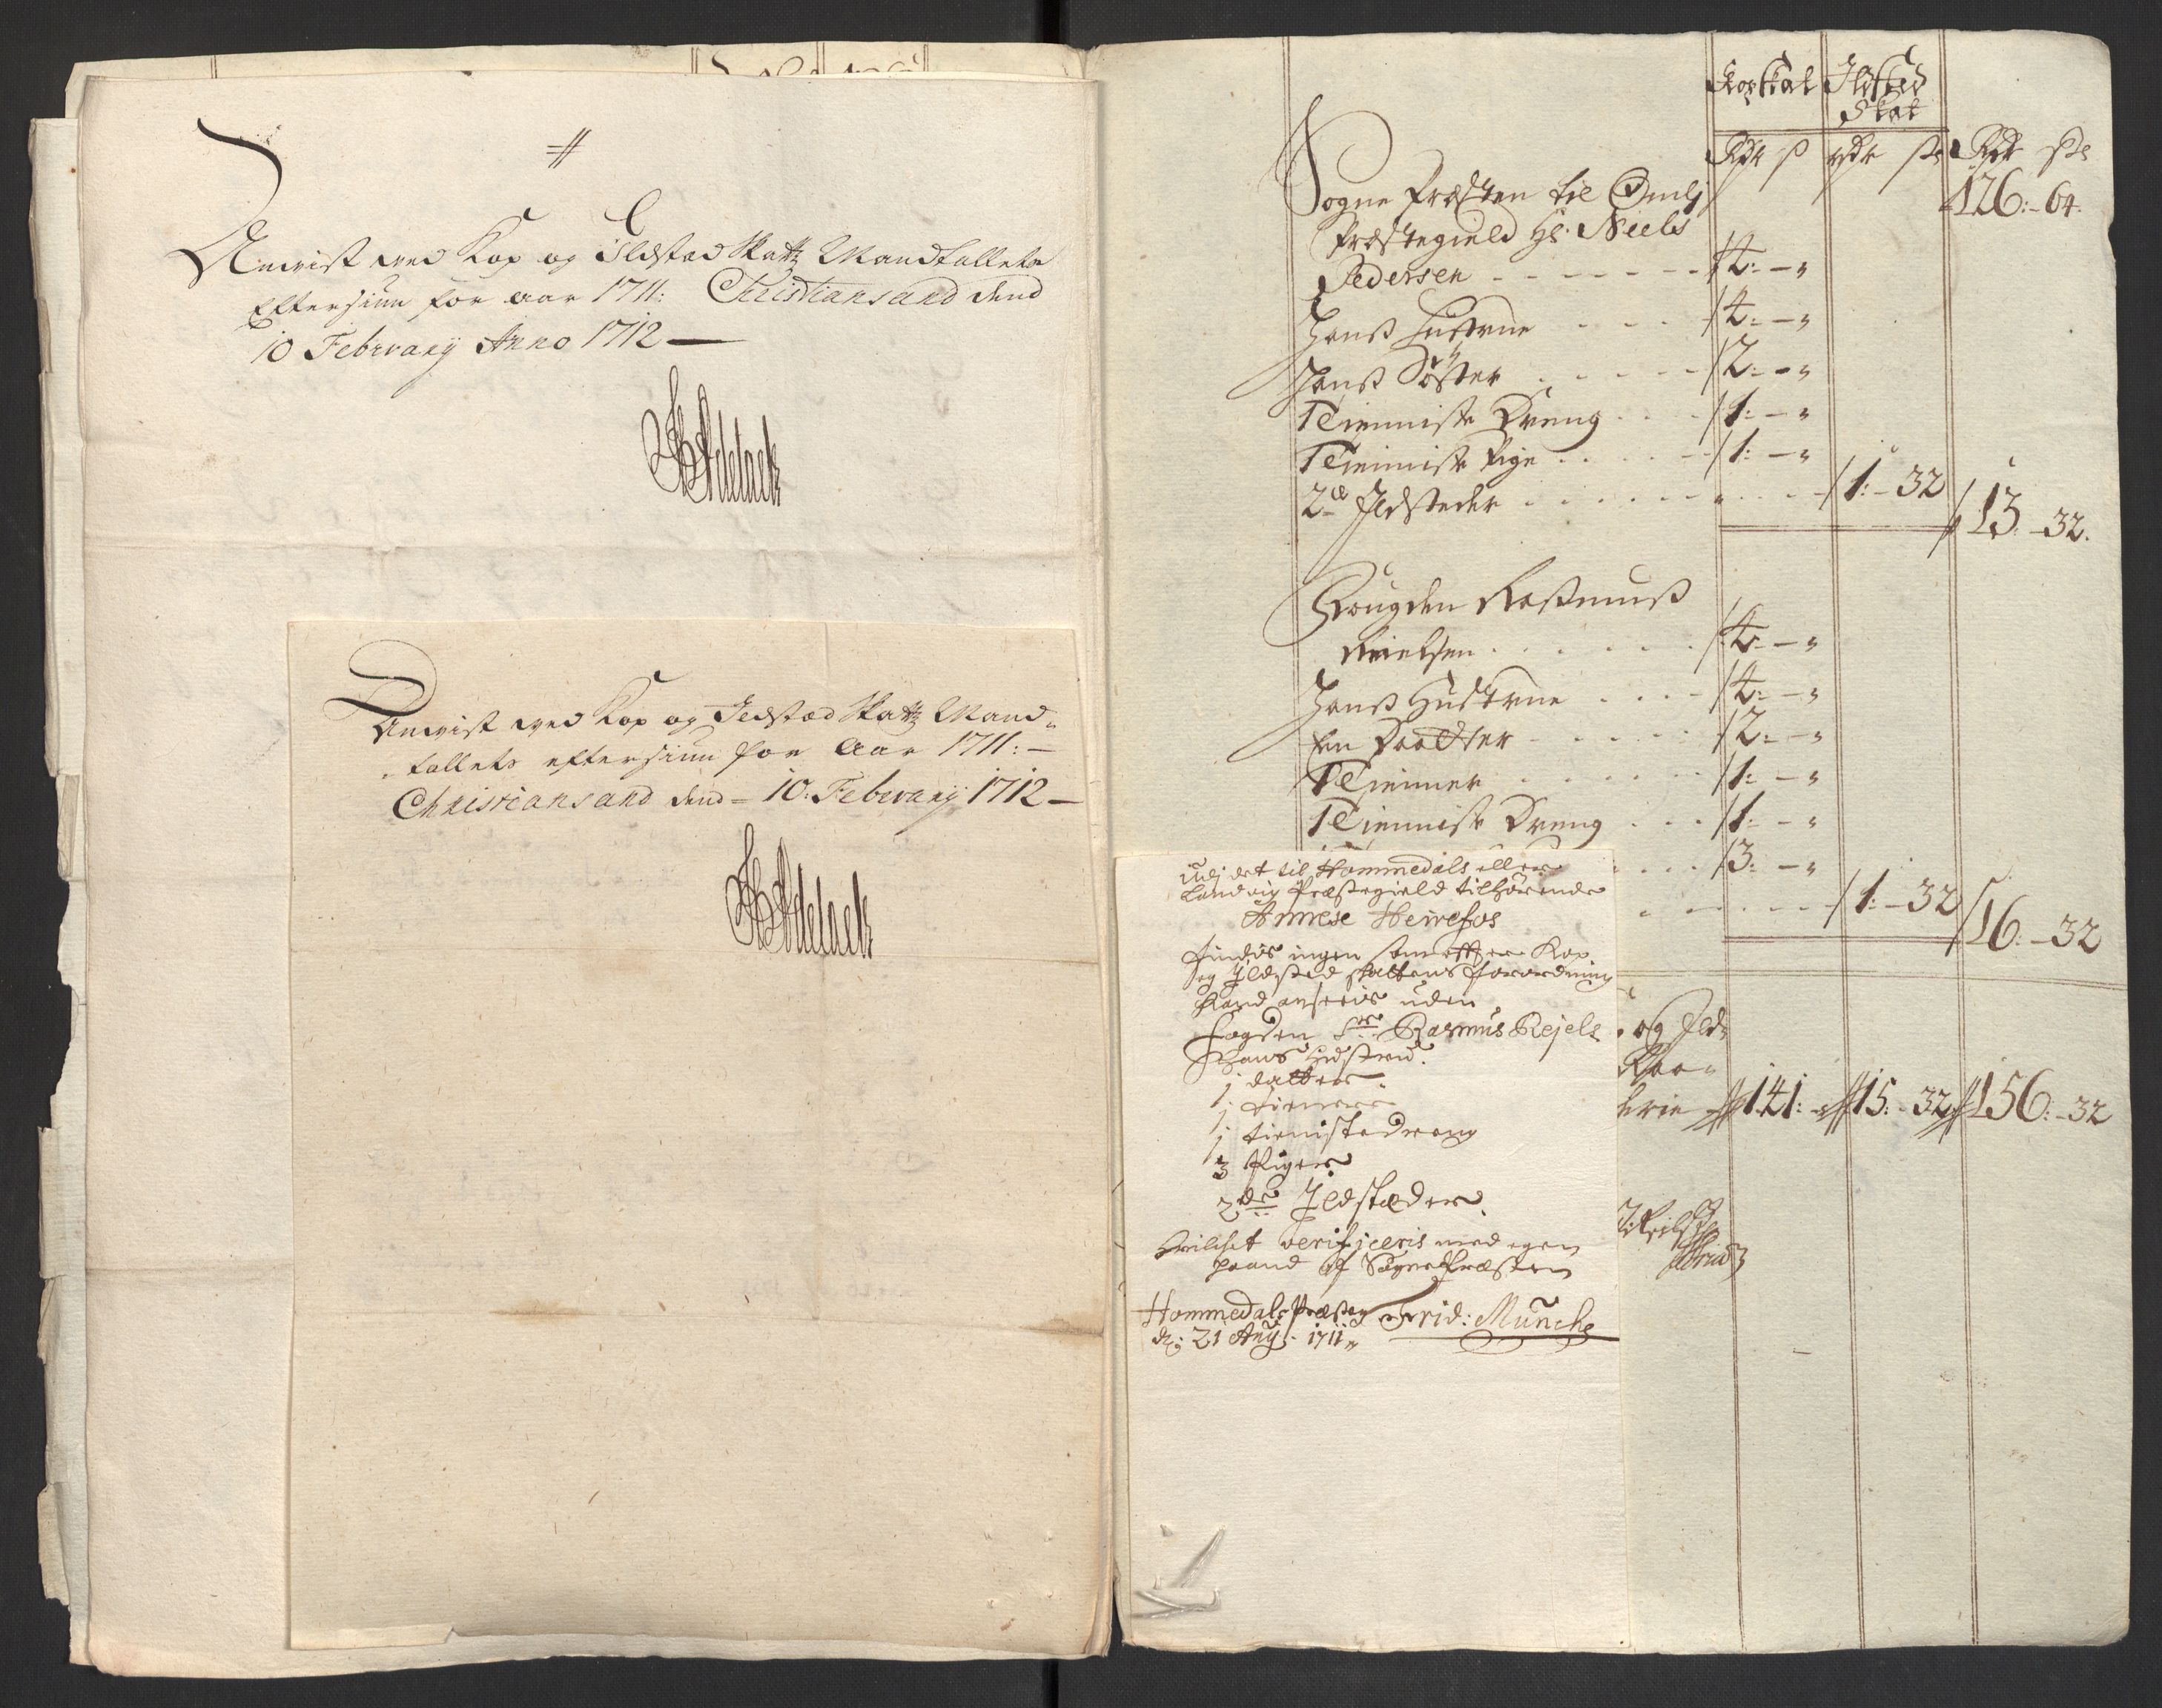 Anvist ved Kop og Ildsted Skatz Mandtallets
Eftersiun for aar 1711: Christiansand dend
10 February Anno 1712 —
Anvist ved Kop og Ildsted Skatz Mand-
tallets eftersiun for Aar 1711: —
Christiansand dend - 10: February 1712 —
Kopskat Ildsted
Skat
Rdr ß rdr ß Rdr ß
126:-64.
Sogne Præsten til
Præstegield Hr. Niels
Pedersen - - - - 4: — "
Hanß Hustrue - - - 4: — "
Hanß Søster - - - 2: — "
1 Tienniste Dreng - - - 1: — "
1 Tienniste Pige - - - 1: — "
2de Ildsteder - - - 1:-32 13:-32.
Fougden Rasmuß
Nielsen - - - 4: — "
Hanß Hustrue - - - 4: — "
En Daatter - - - 2: — "
1 Tienner - - - 1: — "
1 Tienniste Dreng - - - 1: — "
3: — "
1:-32 16:-32
og Ild-
141: " 15:-32 156:-32
Udj det til Hommedals eller
Landvig Præstegield tilhørende
Annexe Heirefos
findes ingen som efter Kop
og Ildsted skattens forordning
kand ansees uden
fogden Sr. Rasmus Rejels
Hans Hustrue.
1 datter.
1 tiener
1 tienistedreng
3 Piger
2de Ildstæder.
Hvilchet verificeris med egen
haand af SognePræsten
Hommedals Præstegr Frid: Munche
d: 21 Aug: 1711